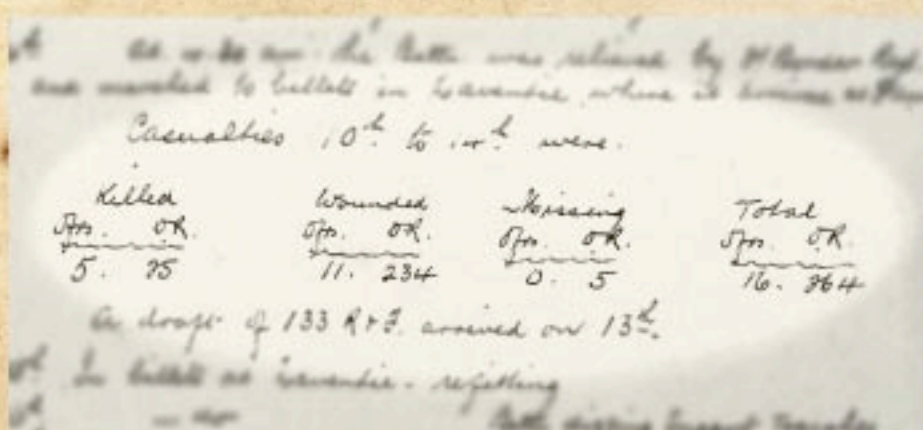 the Battn was relieved by
and marched to billets in Laventie where it arrived at
Casualties 10th to 14th were.
Killed Wounded Missing Total
Ofrs. OR. Ofrs. OR. Ofrs. OR. Ofrs. OR.
5. 75 11. 234 0. 5 16. 364
A draft of 133 R & F. arrived on 13th.
In billets at Laventie - refitting